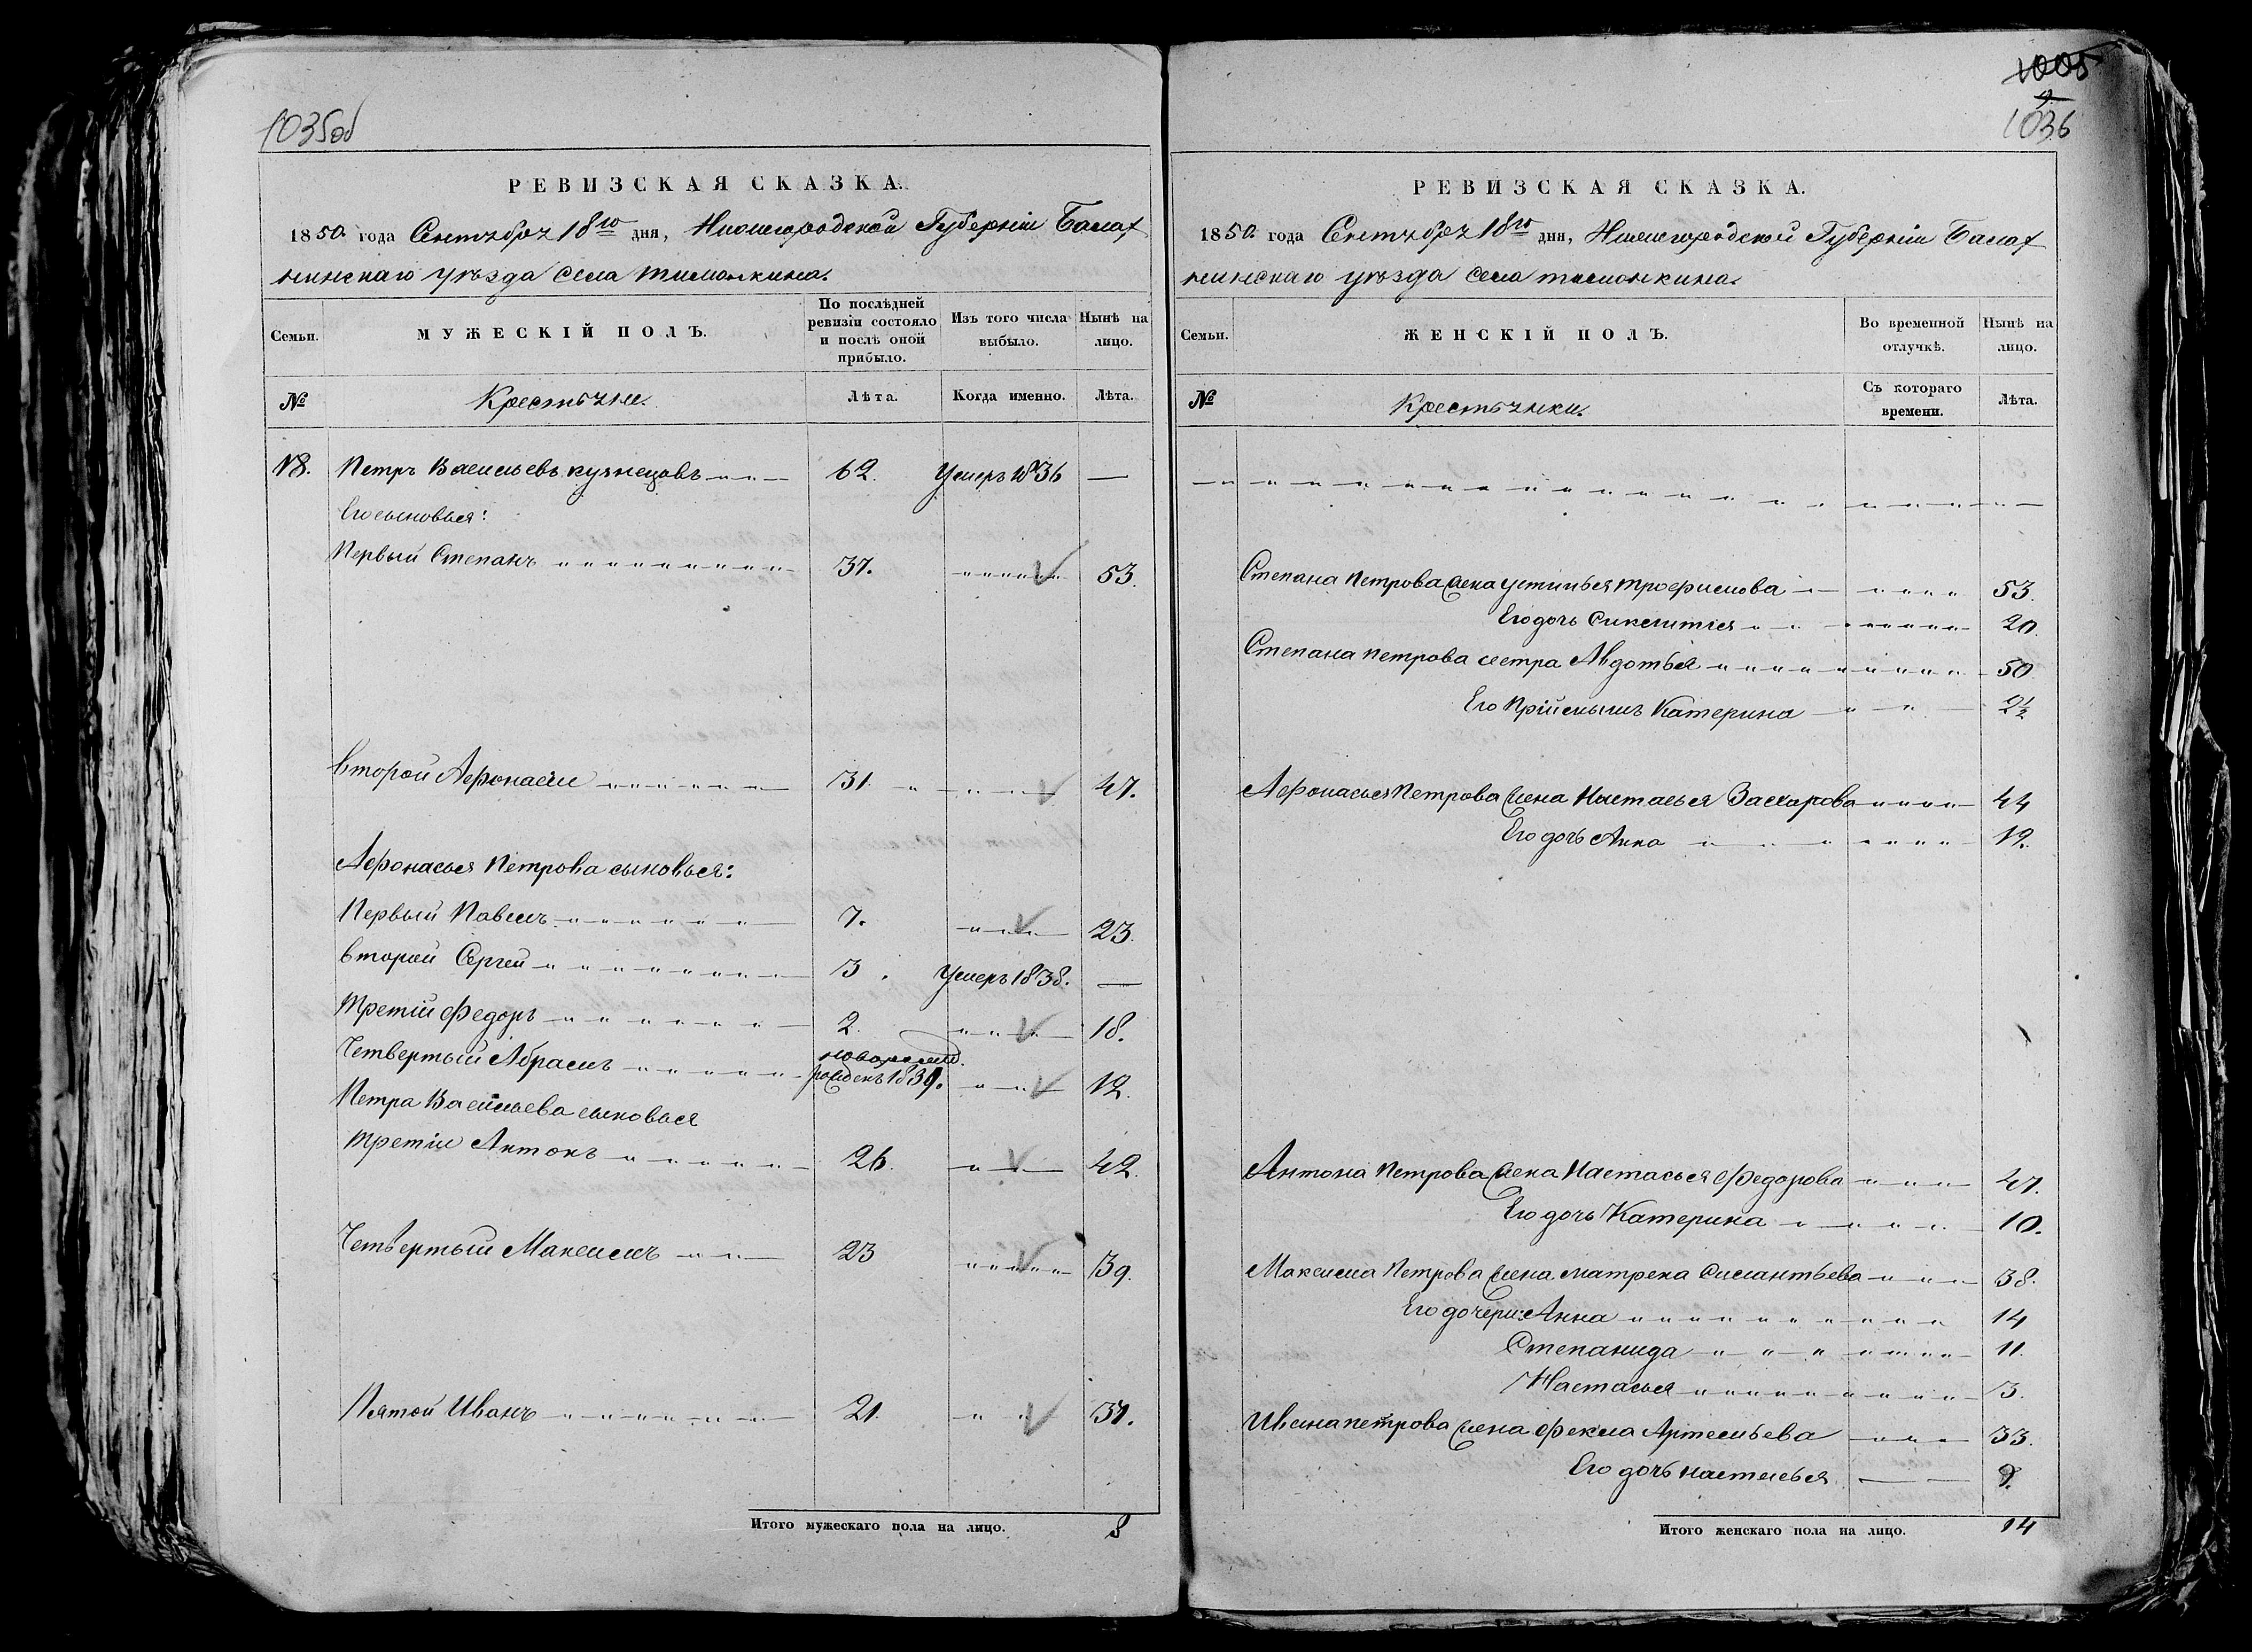 1035об
РЕВИЗСКАЯ СКАЗКА.
1850. года Сентября 18го дня, Нижегородской Губерніи Балах
нинскаго уѣзда села Тимонкина.
Семьи.
МУЖЕСКІЙ ПОЛЪ.
По послѣдней ревизіи состояло и послѣ оной прибыло.
Изъ того числа выбыло.
Нынѣ на лицо.
№
Крестьяне.
Лѣта.
Когда именно.
Лѣта.
18. Петръ Васильевъ Кузнецовъ 62. Умеръ 1836 —
Его сыновья:
Первый Степанъ 37. 53.
Второй Афонасіи 31. 47.
Афонасья Петрова сыновья:
Первый Павелъ 7. 23.
Второй Сергей 3. Умеръ 1838. —
Третій Федоръ 2. 18.
Четвертый Абрамъ рожденъ 1839. 12.
Петра Васильева сыновья
Третіи Антонъ 26. 42.
Четвертый Максимъ 23 39.
Пятой Иванъ 21. 37.
Итого мужескаго пола на лицо. 8
1005
1036
РЕВИЗСКАЯ СКАЗКА.
1850. года Сентября 18го дня, Нижегородской Губерніи Балах
нинскаго уѣзда села Тимонкина.
Семьи.
ЖЕНСКІЙ ПОЛЪ.
Во временной отлучкѣ.
Нынѣ на лицо.
№
Крестьянки.
Съ котораго времени.
Лѣта.
Степана Петрова жена Устинья Трофимова 53.
Его дочь 20.
Степана Петрова сестра Авдотья 50.
Его Пріймышъ Катерина 2½
Афонасья Петрова жена Настасья Захарова 44
Его дочь Анна 19.
Антона Петрова жена Настасья Федорова 47.
Его дочь Катерина 10.
Максима Петрова жена Матрена Силантьева 38.
Его дочери: Анна 14
Степанида 11.
Настасья 3.
Ивана Петрова жена Фекла Артемьева 33.
Его дочь Настасья 9.
Итого женскаго пола на лицо. 14